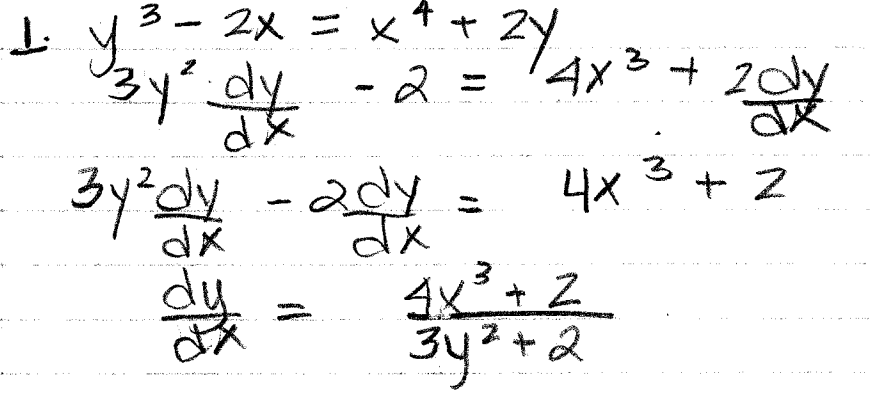 1. y³ - 2x = x⁴ + 2y
3y² dy/dx - 2 = 4x³ + 2dy/dx
3y² dy/dx - 2dy/dx = 4x³ + 2
dy/dx = (4x³ + 2)/(3y² + 2)